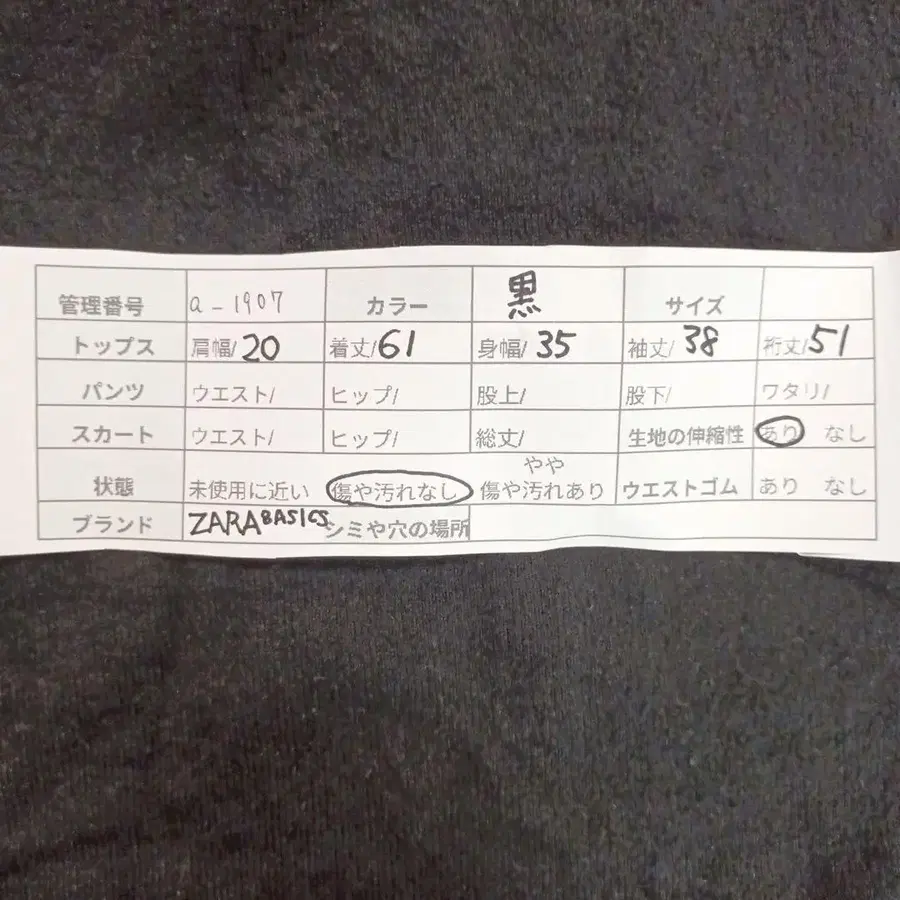 管理番号 a-1907 カラー 黒 サイズ
トップス 肩幅/20 着丈/61 身幅/35 袖丈/38 裄丈/51
パンツ ウエスト/ ヒップ/ 股上/ 股下/ ワタリ/
スカート ウエスト/ ヒップ/ 総丈/ 生地の伸縮性 あり なし
状態 未使用に近い 傷や汚れなし やや傷や汚れあり ウエストゴム あり なし
ブランド ZARA BASICS シミや穴の場所